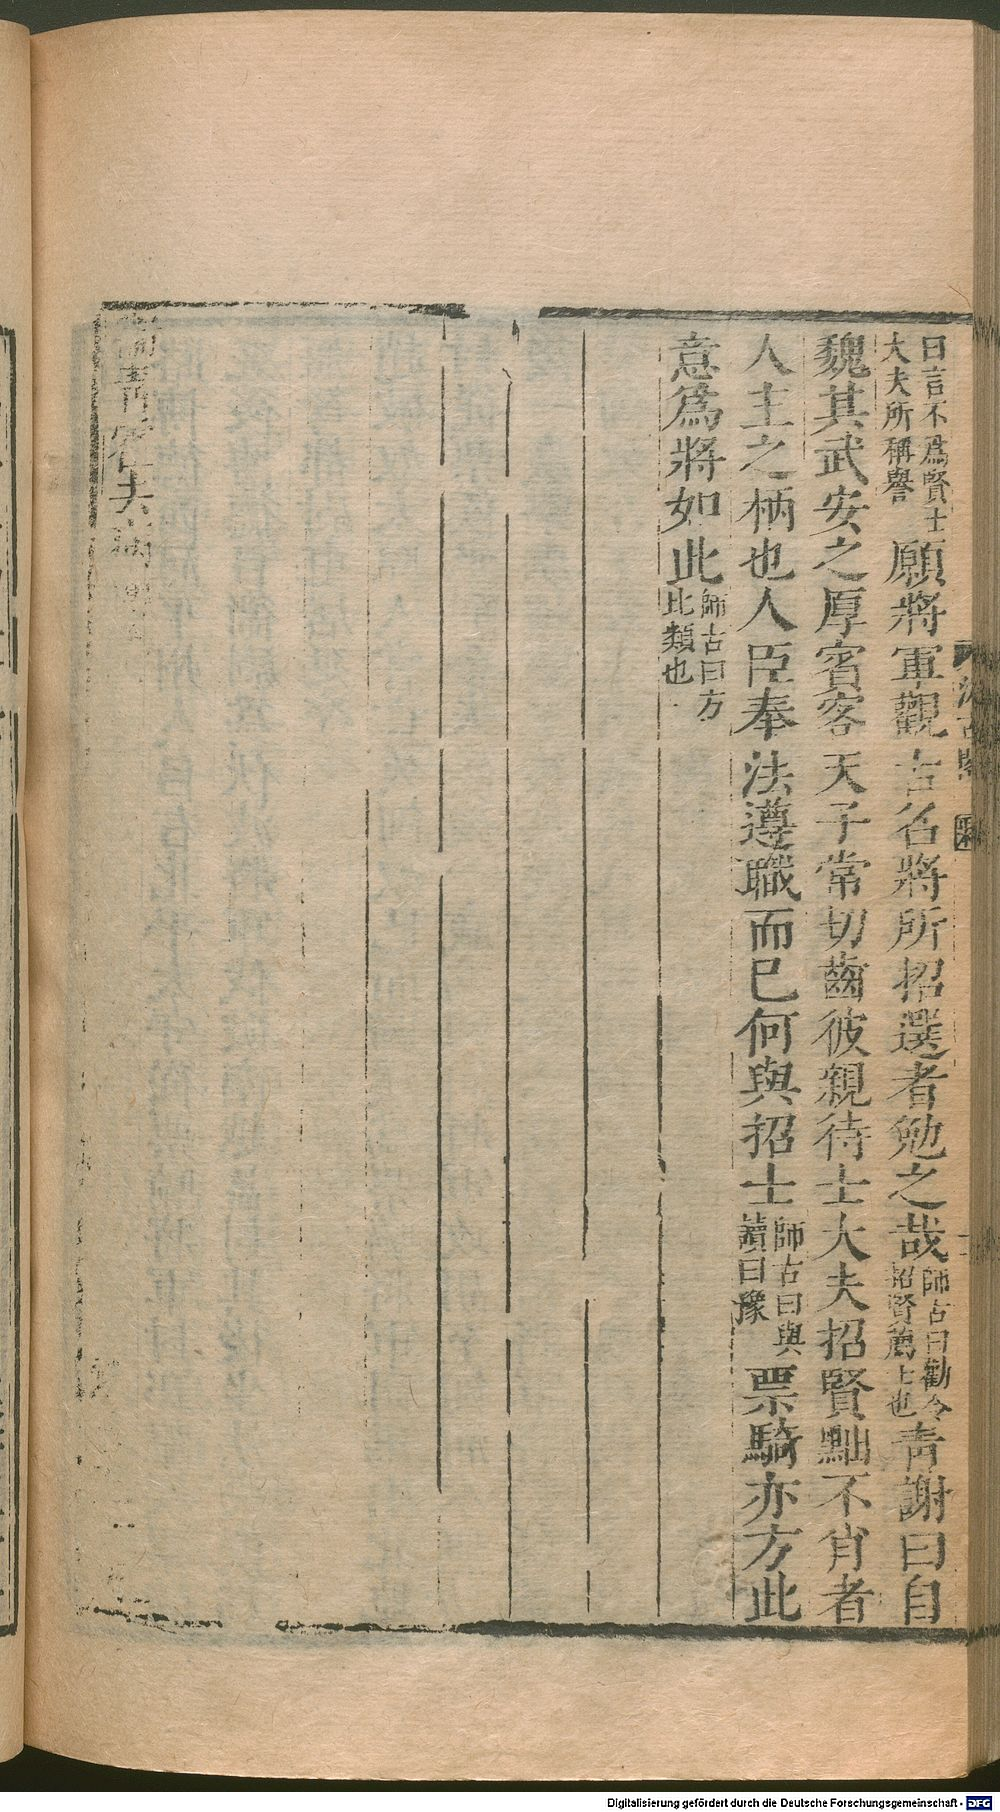 曰言不爲賢士
大夫所稱譽
願將軍觀古名將所招選者勉之哉
師古曰勸令
招賢薦士也
青謝曰自
魏其武安之厚賓客天子常切齒彼親待士大夫招賢黜不肖者
人主之柄也人臣奉法遵職而已何與招士
師古曰與
讀曰豫
票騎亦方此
意爲將如此
師古曰方
比類也
汲古閣
Digitalisierung gefördert durch die Deutsche Forschungsgemeinschaft - DFG